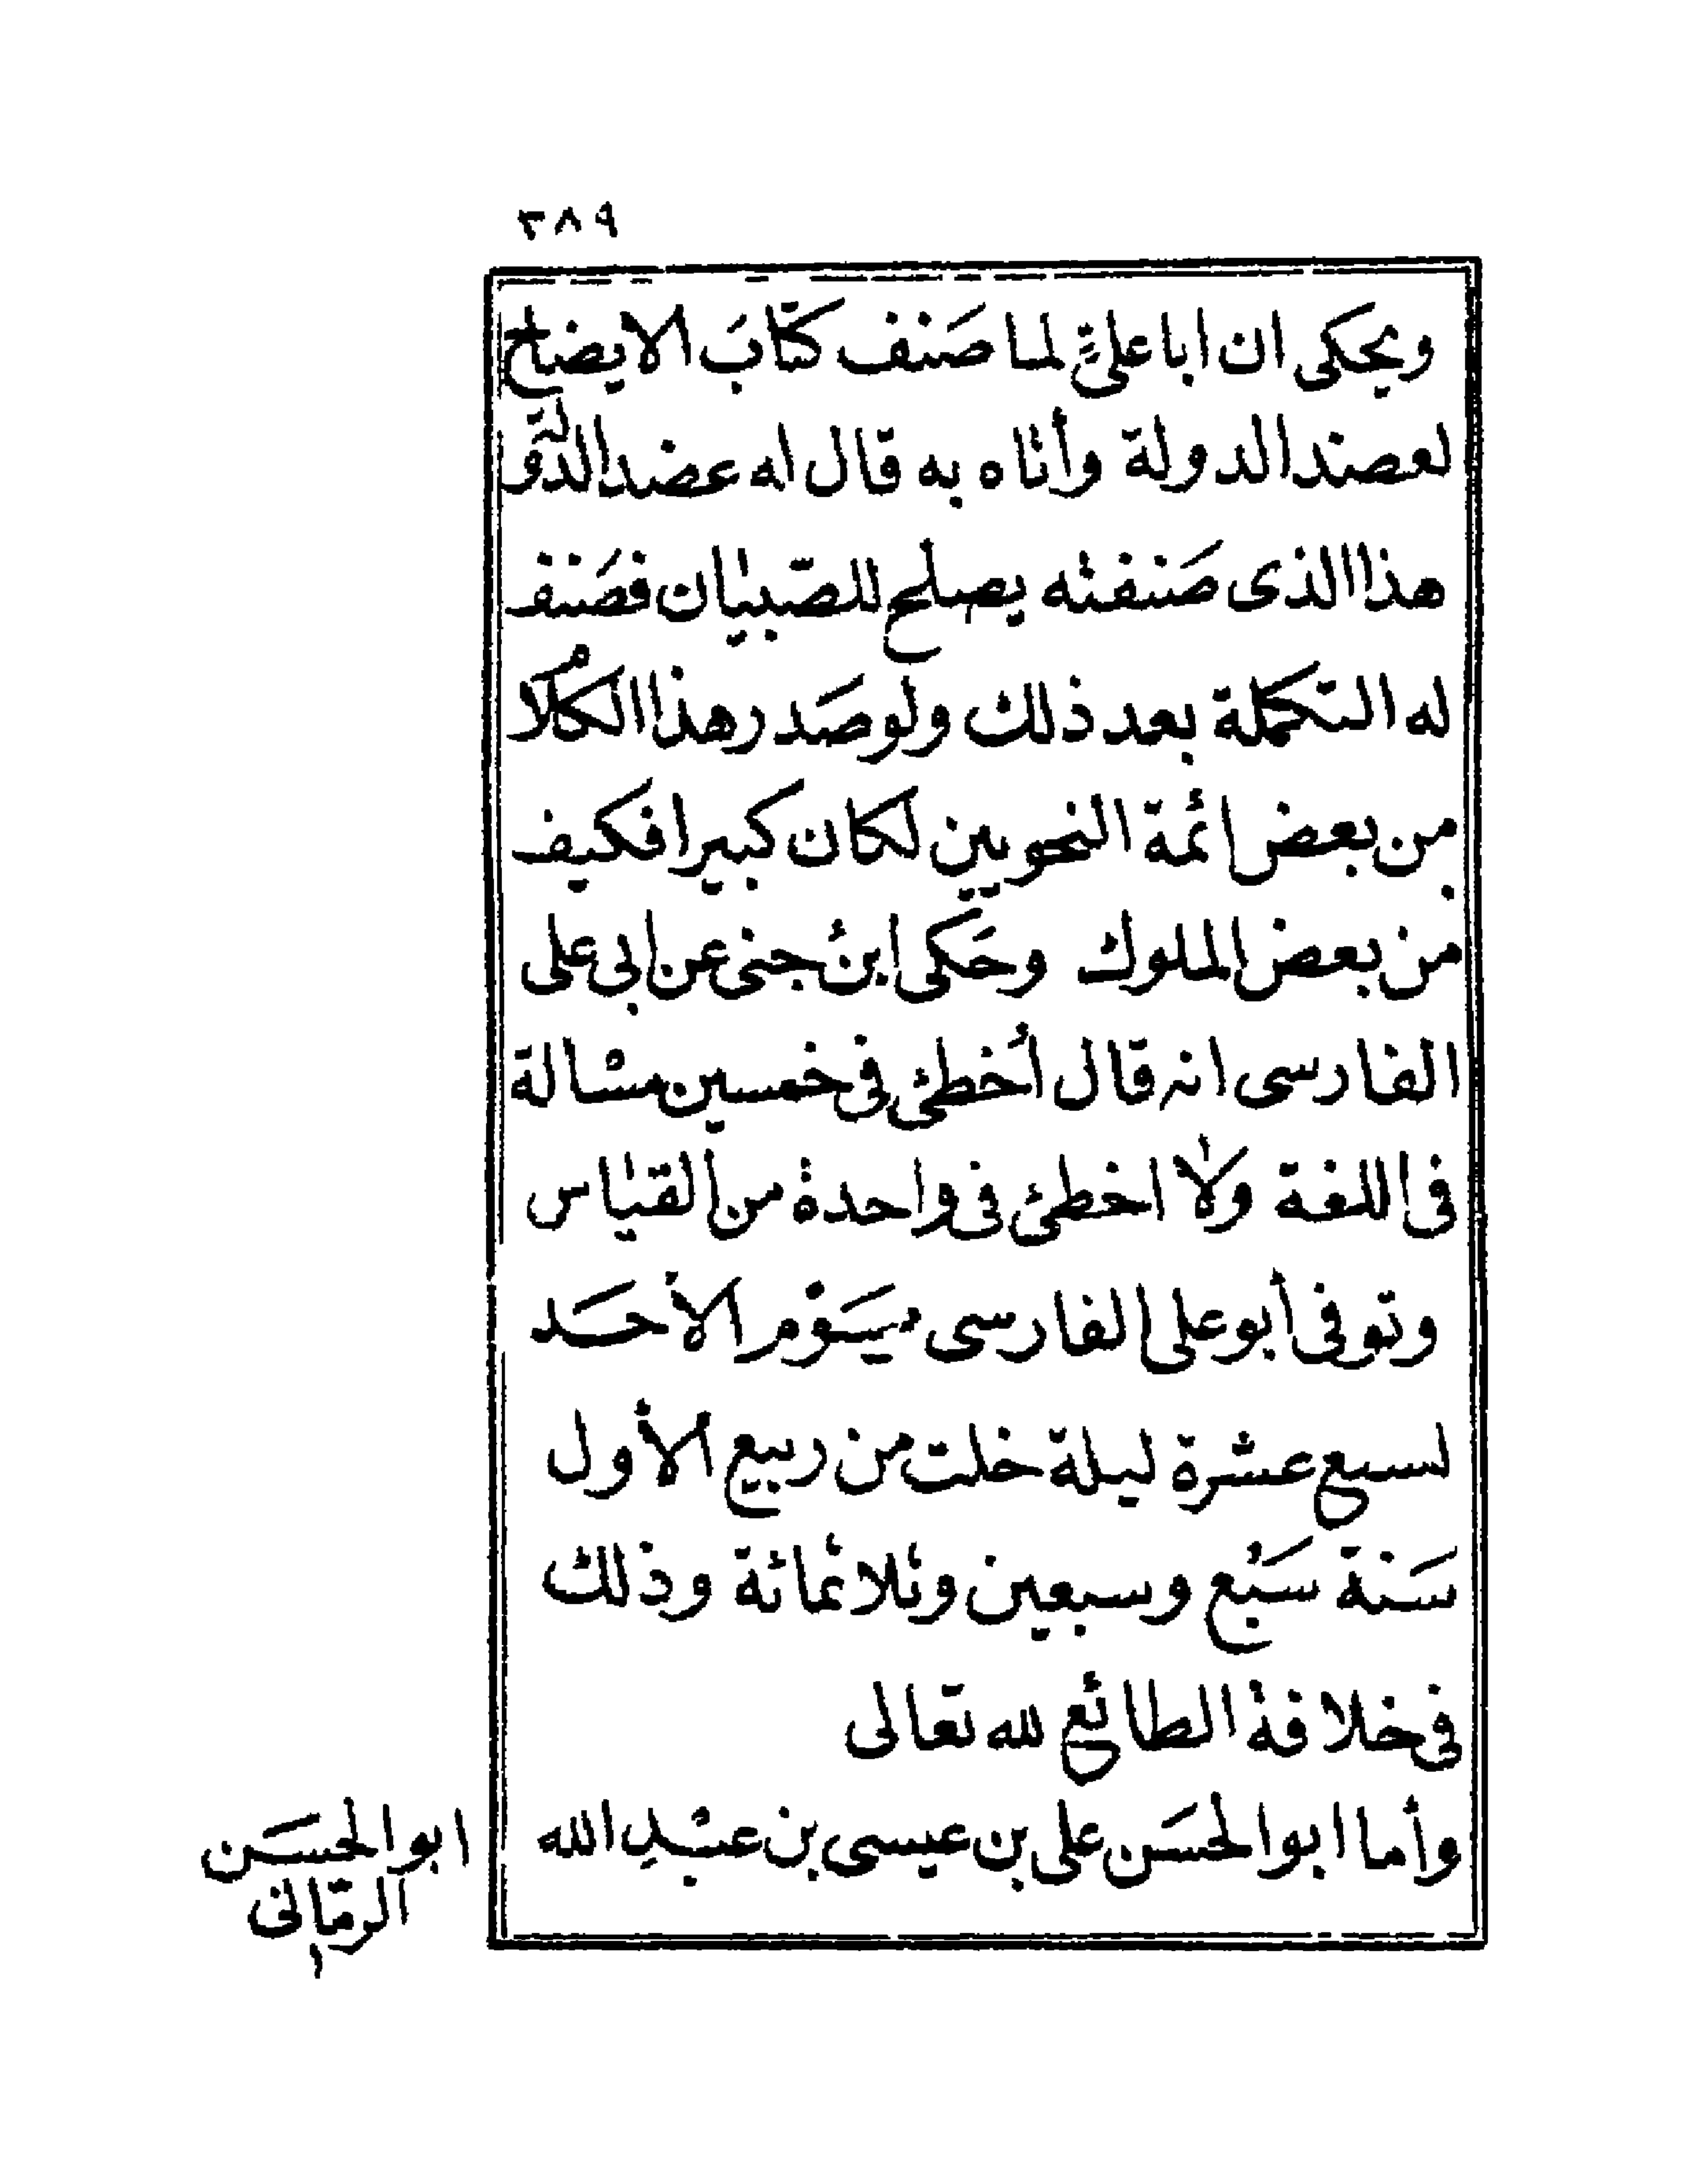 ٣٨٩
ويحكى ان ابا علىٍّ لما صَنف كتّابَ الايضاح
لعضد الدولة وأتاه به قال له عضد الدولة
هذا الذى صَنفته يصلح للصّبيان فصَنف
له التكملة بعد ذلك ولو صَدر هذا الكلام
من بعض ائمة النحويين لكان كبيرا فكيف
من بعض الملوك وحَكى ابنُ جنى عن ابى على
الفارسى انه قال أخطئ فى خمسين مسالة
فى اللغة ولا اخطئ فى واحدة من القياس
وتوفى أبو على الفارسى يَوْم الأحَد
لسبع عشرة ليلة خلت من ربيع الأول
سَنة سَبْع وسبعين وثلاثمائة وذلك
فى خلافة الطائع لله تعالى
وأما ابو الحسَن على بن عيسى بن عبْدِ الله
ابو الحسَن
الرمّانى